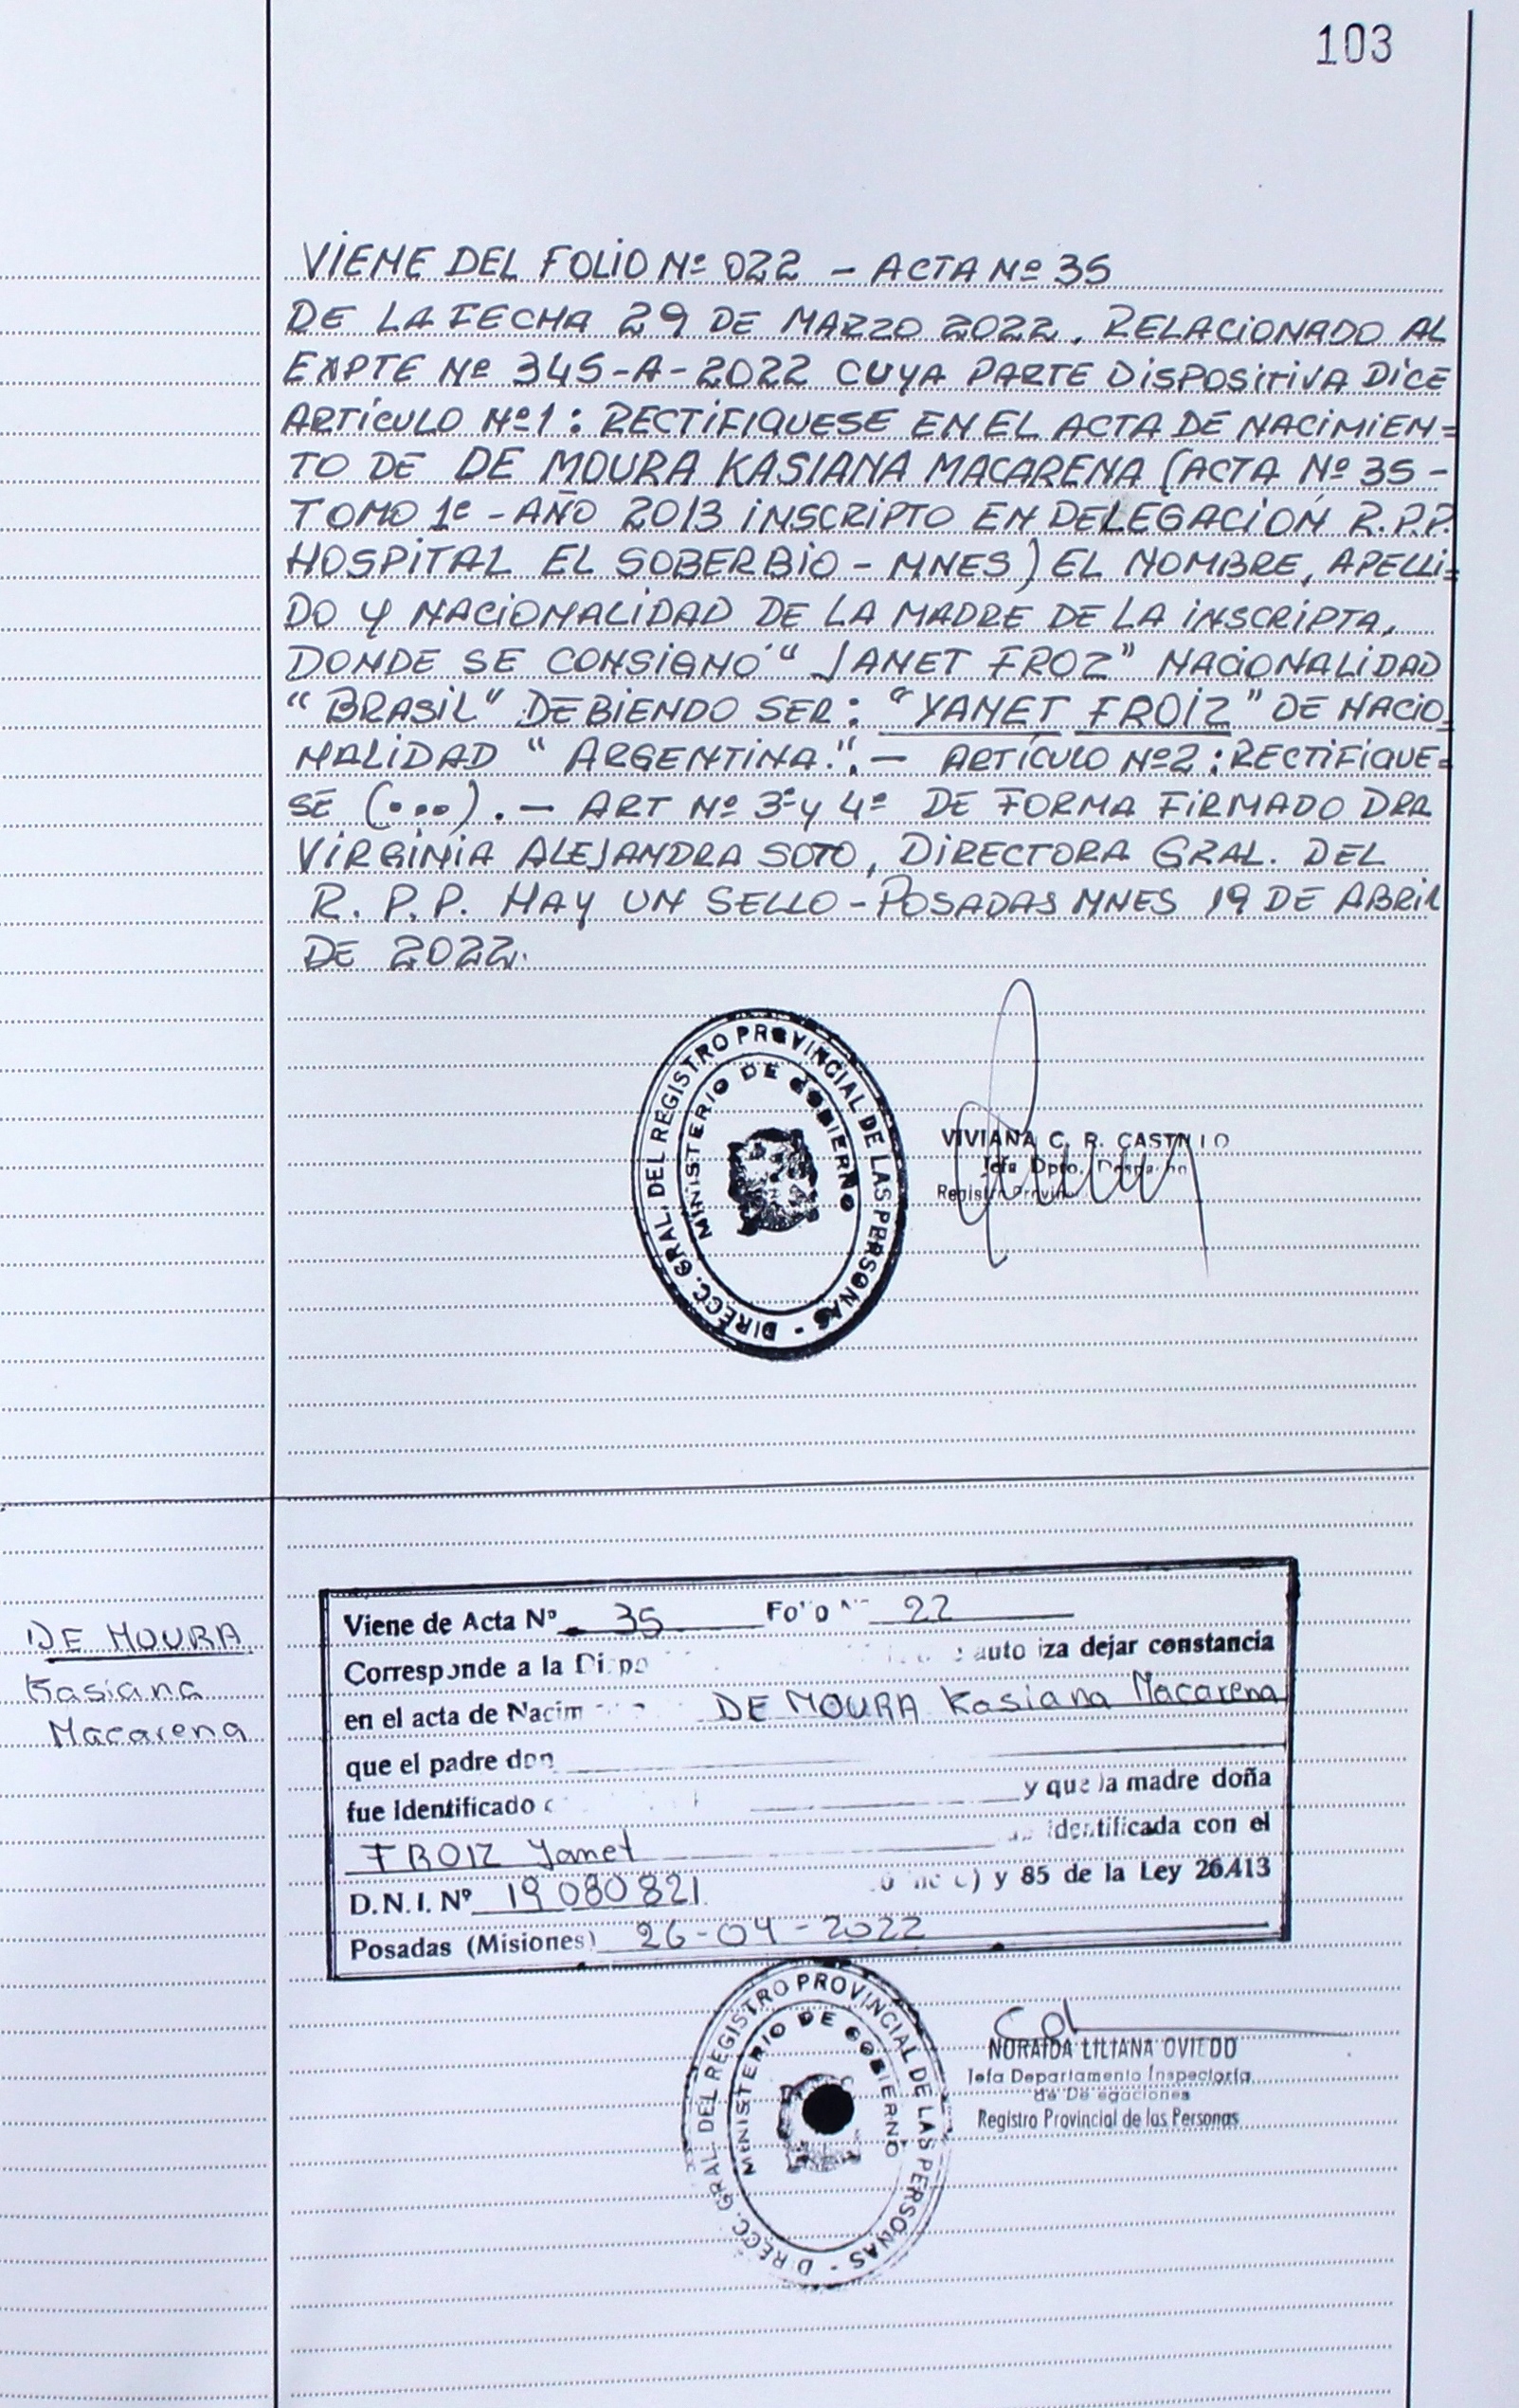 103
VIENE DEL FOLIO Nº 022 - ACTA Nº 35
DE LA FECHA 29 DE MARZO 2022, RELACIONADO AL
EXPTE Nº 345-A-2022 CUYA PARTE DISPOSITIVA DICE
ARTÍCULO Nº1: RECTIFIQUESE EN EL ACTA DE NACIMIEN=
TO DE DE MOURA KASIANA MACARENA (ACTA Nº 35 -
TOMO 1º - AÑO 2013 INSCRIPTO EN DELEGACIÓN R.P.P.
HOSPITAL EL SOBERBIO - MNES) EL NOMBRE, APELLI=
DO Y NACIONALIDAD DE LA MADRE DE LA INSCRIPTA,
DONDE SE CONSIGNO "JANET FROZ" NACIONALIDAD
"BRASIL" DEBIENDO SER: "YANET FROIZ" DE NACIO=
NALIDAD "ARGENTINA". - ARTÍCULO Nº2: RECTIFIQUE=
SE (...). - ART Nº 3º y 4º DE FORMA FIRMADO DRA
VIRGINIA ALEJANDRA SOTO, DIRECTORA GRAL. DEL
R. P. P. HAY UN SELLO - POSADAS MNES 19 DE ABRIL
DE 2022.
DIRECC. GRAL. DEL REGISTRO PROVINCIAL DE LAS PERSONAS -
MINISTERIO DE GOBIERNO
VIVIANA C. R.
Jefa Dpto.
Registro
DE MOURA
Kasiana
Macarena
Viene de Acta Nº 35 Folio 22
Corresponde a la autoriza dejar constancia
en el acta de DE MOURA Kasiana Macarena
que el padre don
fue Identificado y que la madre doña
FROIZ Yanet identificada con el
D.N.I. Nº 19080821 y 85 de la Ley 26.413
Posadas (Misiones) 26-04-2022
DIRECC. GRAL. DEL REGISTRO PROVINCIAL DE LAS PERSONAS -
MINISTERIO DE GOBIERNO
NORAIDA LILIANA OVIEDO
Jefa Departamento Inspectoría
de Delegaciones
Registro Provincial de las Personas